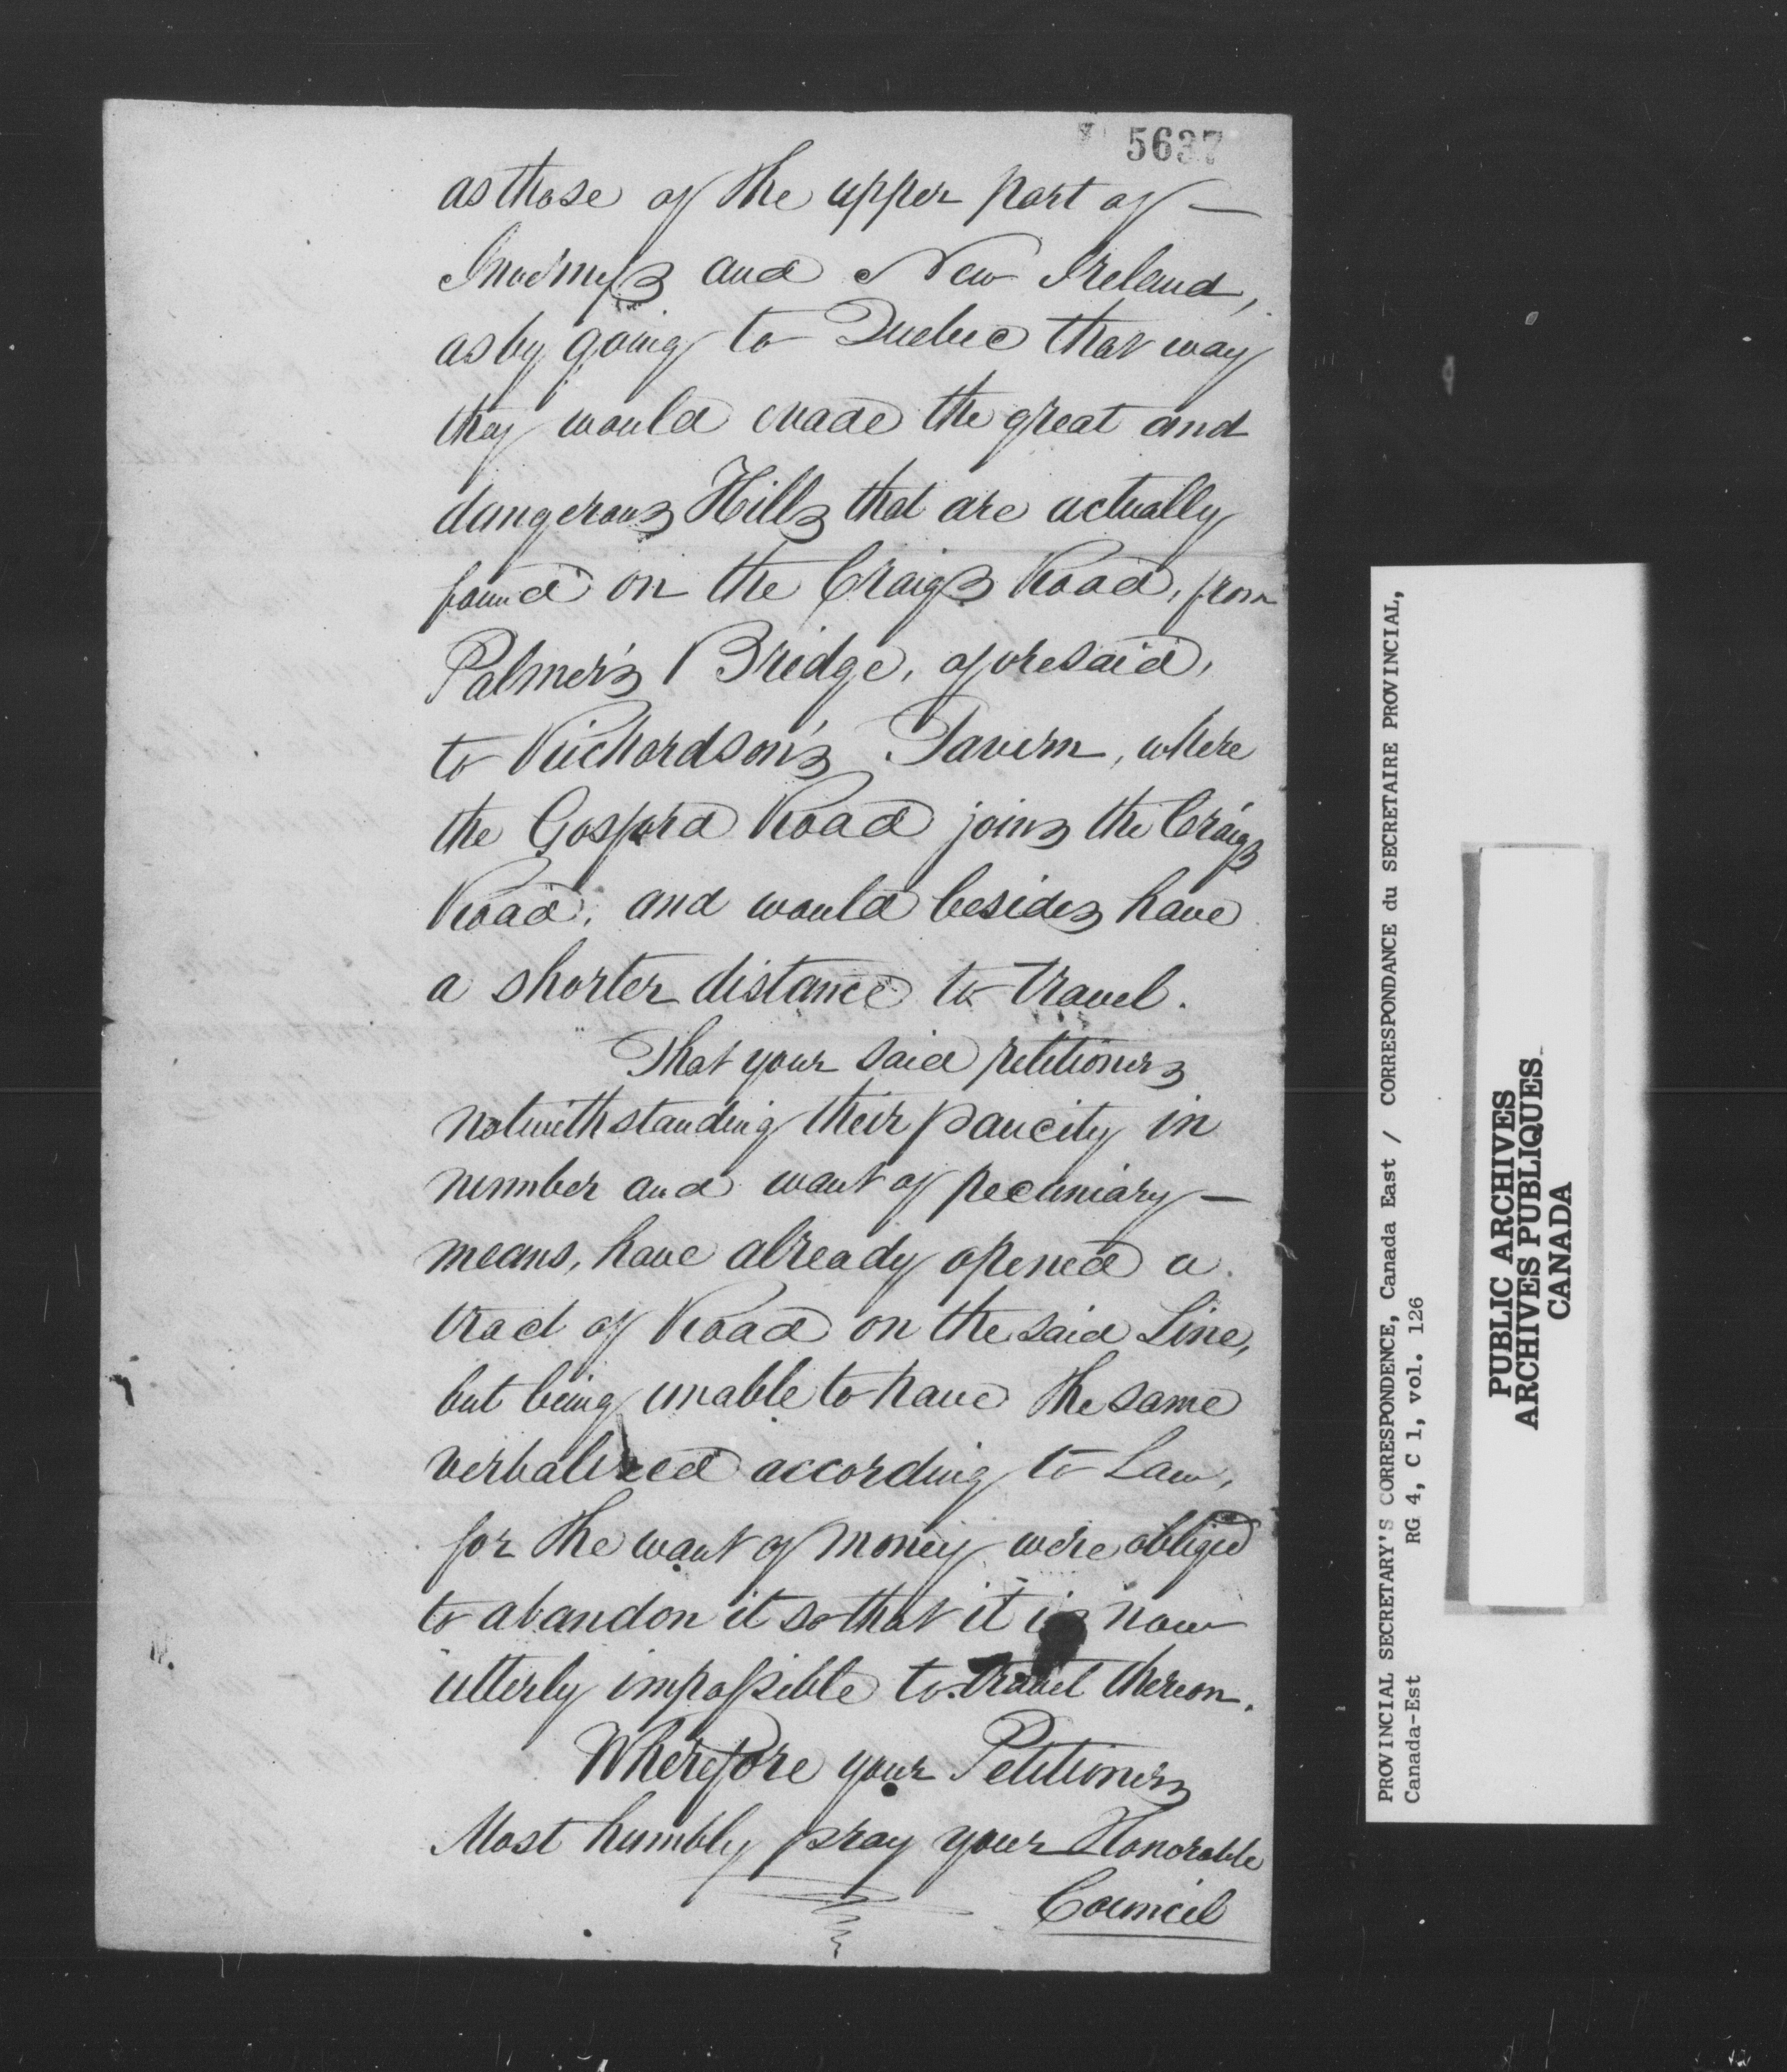 5637
as those of the upper part of —
Inverness and New Ireland,
as by going to Quebec that way
they would evade the great and
dangerous Hills that are actually
found on the Craigs Road, from
Palmer's Bridge, aforesaid,
to Richardson's Tavern, where
the Gosford Road joins the Craigs
Road, and would besides have
a shorter distance to travel.
That your said petitioners
notwithstanding their paucity in
number and want of pecuniary —
means, have already opened a
tract of Road on the said Line,
but being unable to have the same
verbalized according to Law,
for the want of money were obliged
to abandon it so that it is now
utterly impossible to travel thereon.
Wherefore your Petitioners
Most humbly pray your Honorable
Council
PROVINCIAL SECRETARY'S CORRESPONDENCE, Canada East / CORRESPONDANCE du SECRETAIRE PROVINCIAL,
Canada-Est RG 4, C 1, vol. 126
PUBLIC ARCHIVES
ARCHIVES PUBLIQUES
CANADA